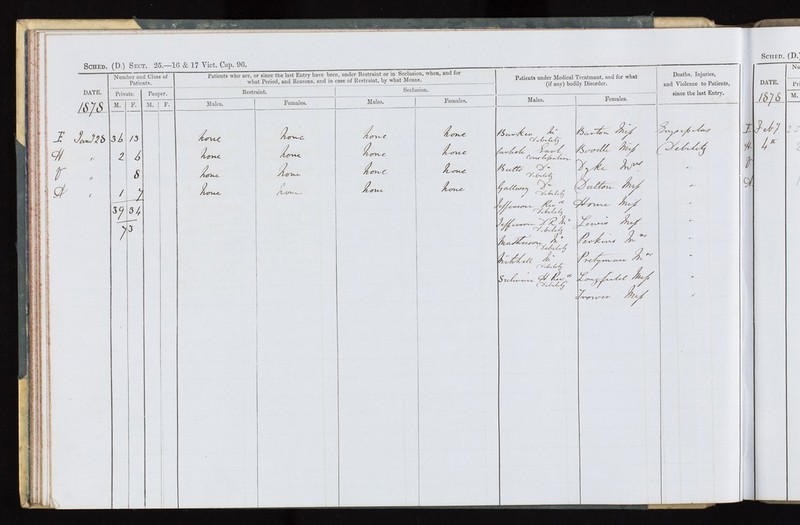 SCHED. (D.) SECT. 25.—16 & 17 Vict. Cap. 96.
DATE.
Number and Class of Patients.
Private. Pauper.
M. F. M. F.
Patients who are, or since the last Entry have been, under Restraint or in Seclusion, when, and for
what Period, and Reasons, and in case of Restraint, by what Means.
Restraint. Seclusion.
Males. Females. Males. Females.
Patients under Medical Treatment, and for what
(if any) bodily Disorder.
Males. Females.
Deaths, Injuries,
and Violence to Patients,
since the last Entry.
1878
E Jan 28 36 13 none none none none Barton Miss
Debility
H " 2 6 none none none none Boodle Miss Debility
Constipation
V " 8 none none none none Butts Dr Dyke Mrs "
Debility
A " 1 7 none none none none Galloway Dr Dalton Miss "
Debility
39 34 Jefferson Rev Horne Miss "
Debility
73 Jefferson Lewis Miss "
Debility
Perkins Mrs "
Debility
Mitchell Mr Pretyman Mrs "
Debility
Longfield Miss "
Debility
Trower Miss "
SCHED. (D.)
DATE.
M.
1878
E Feb 7
H 4
V
A